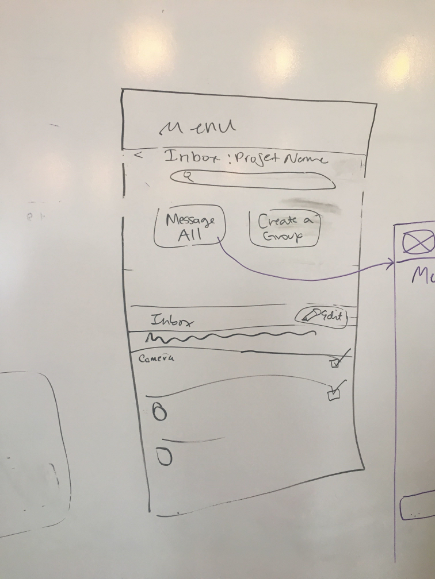 Menu
< Inbox : Projet Name
Message All
Create a Group
Inbox
Edit
Camera